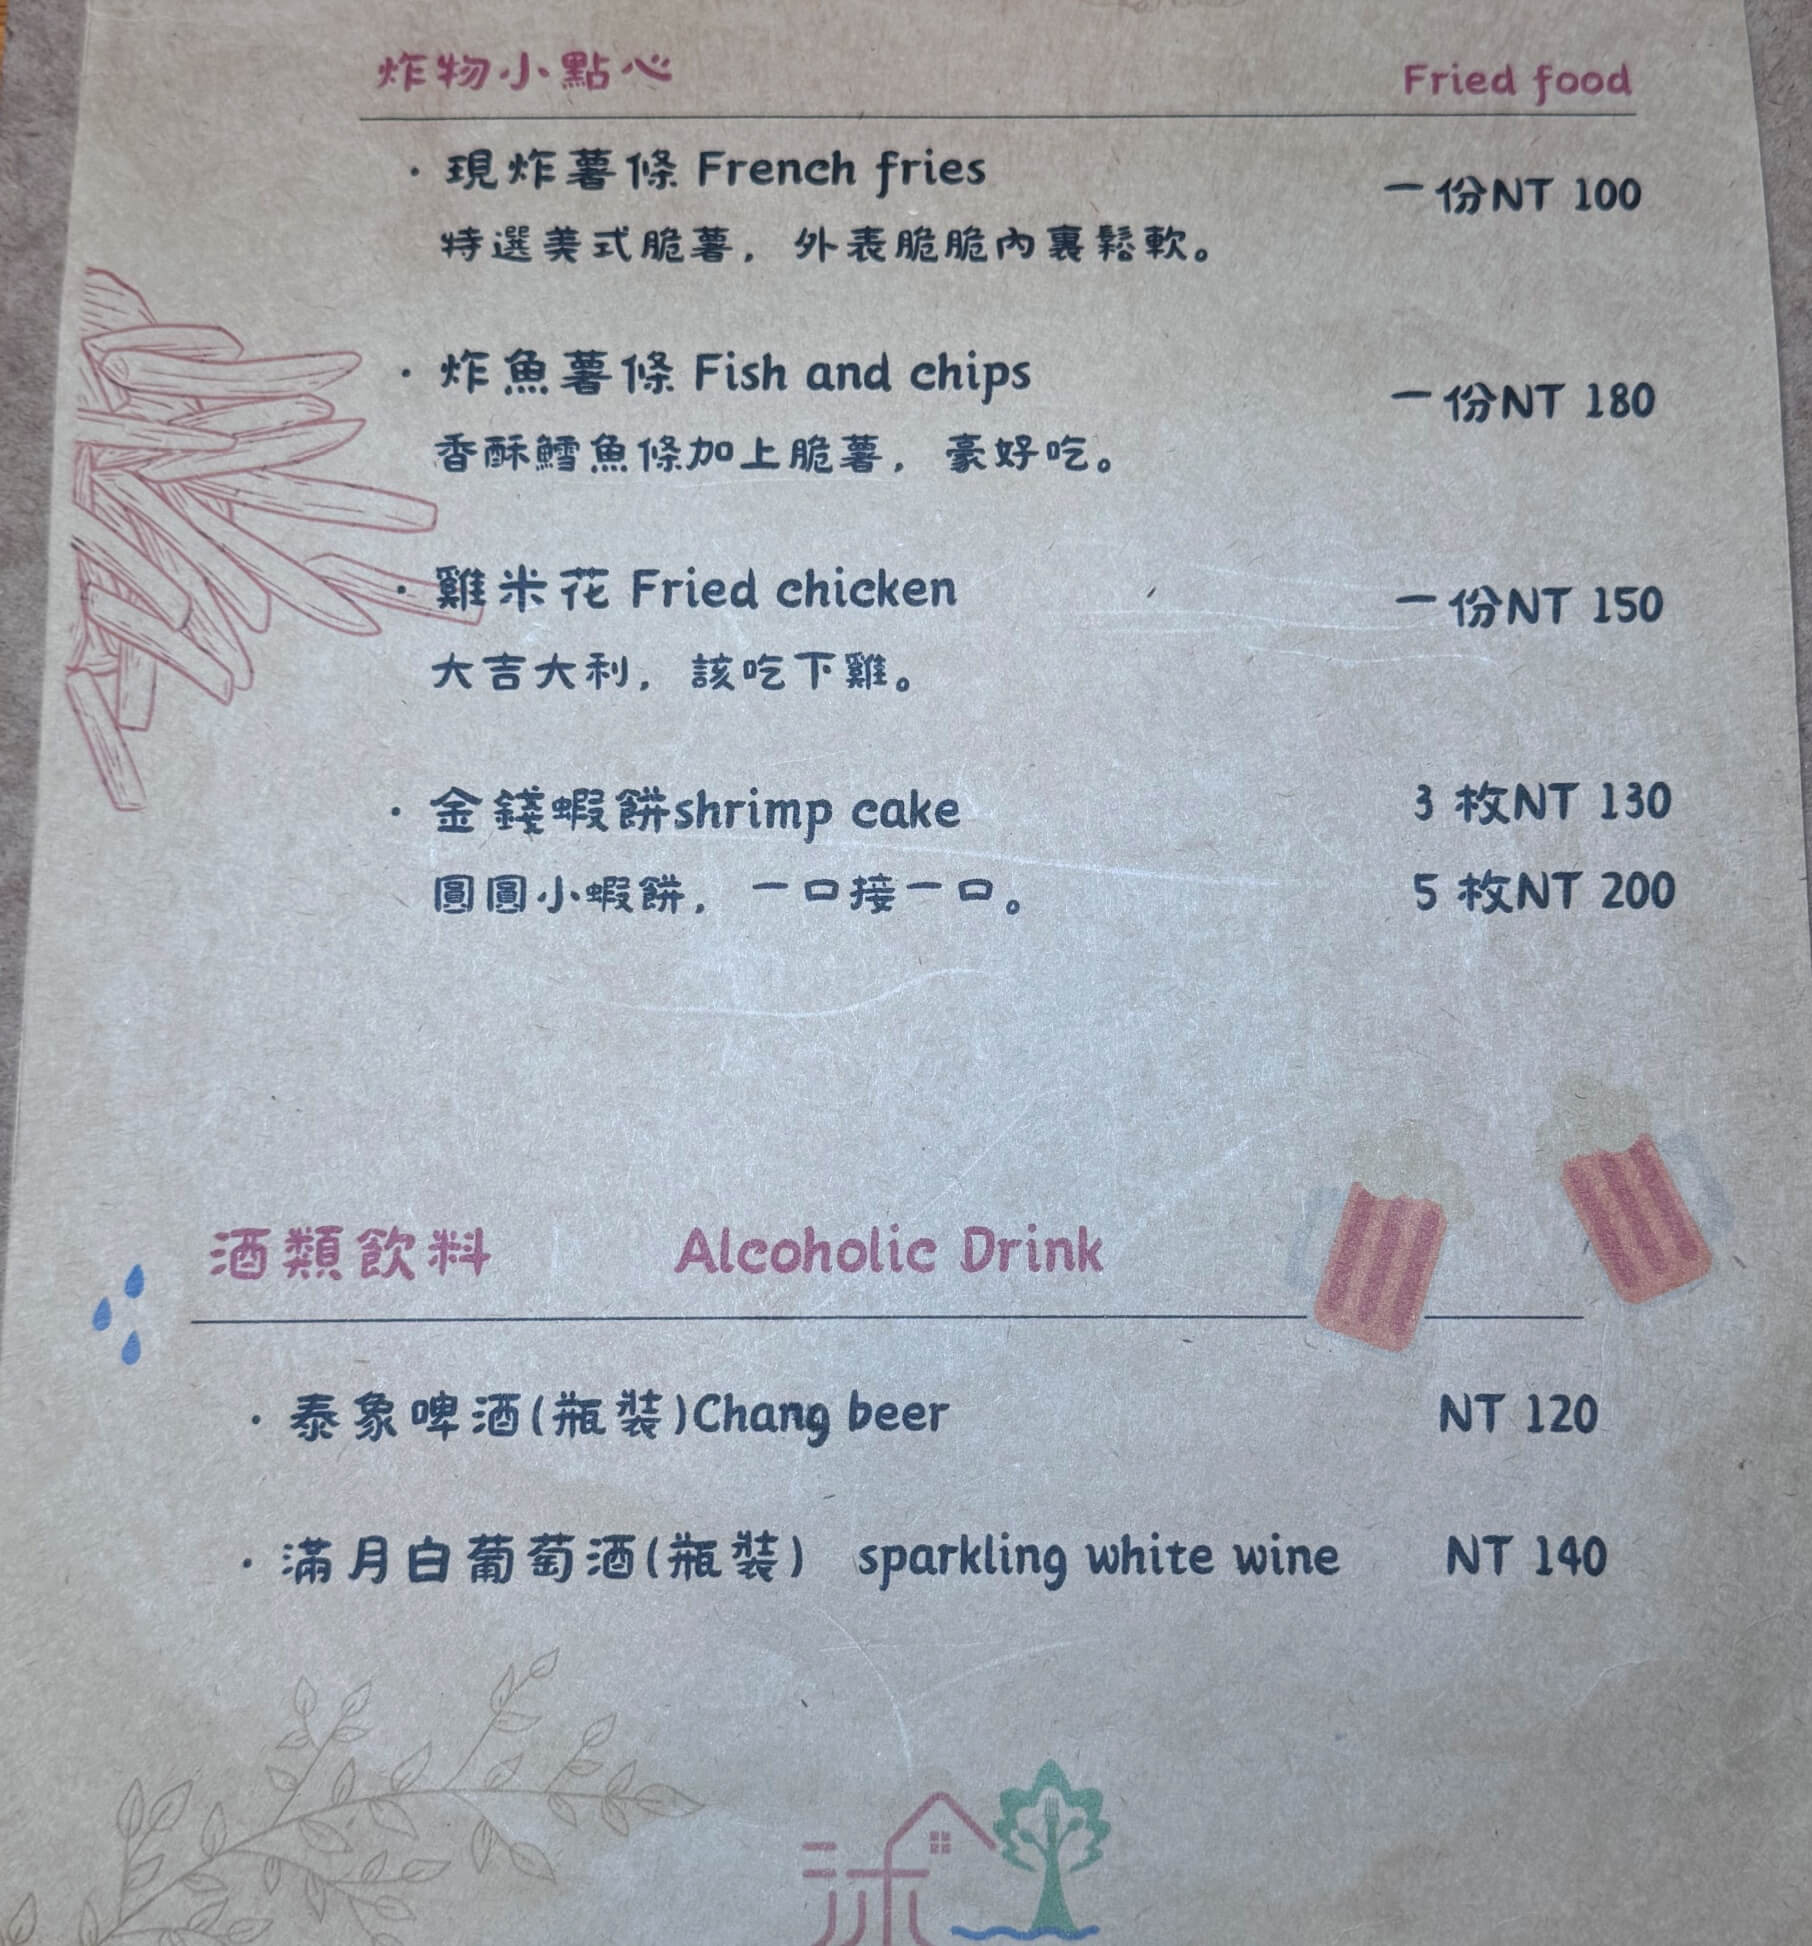 炸物小點心 Fried food
· 現炸薯條 French fries 一份NT 100
特選美式脆薯，外表脆脆內裏鬆軟。
· 炸魚薯條 Fish and chips 一份NT 180
香酥鱈魚條加上脆薯，豪好吃。
· 雞米花 Fried chicken 一份NT 150
大吉大利，該吃下雞。
· 金錢蝦餅shrimp cake 3 枚NT 130
圓圓小蝦餅，一口接一口。 5 枚NT 200
酒類飲料 Alcoholic Drink
· 泰象啤酒(瓶裝)Chang beer NT 120
· 滿月白葡萄酒(瓶裝) sparkling white wine NT 140